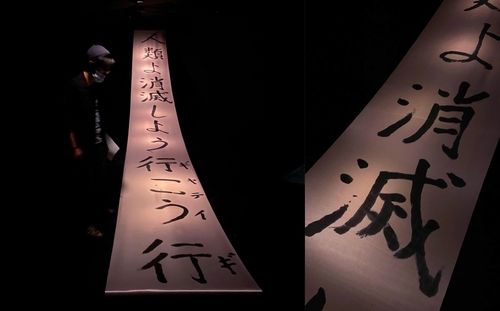 人類よ消滅しよう行こう行
ギャティ
ギ
よ消滅